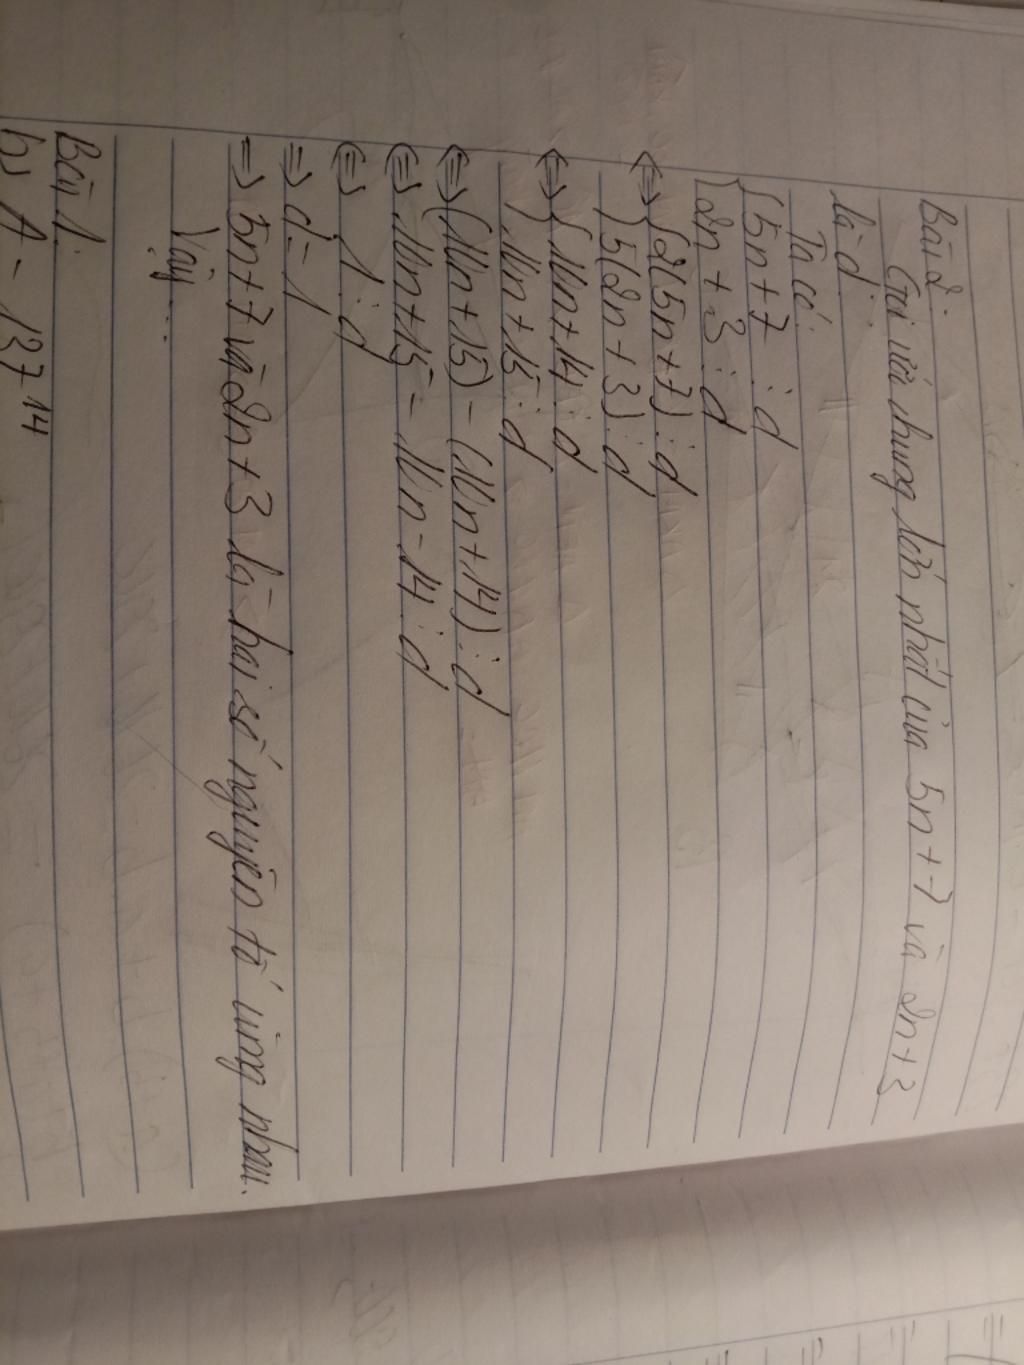 Bài 2.
Gọi ước chung lớn nhất của 5n+7 và 2n+3
là d.
Ta có:
{ 5n+7 ⋮ d
2n+3 ⋮ d
<=> { 2(5n+7) ⋮ d
5(2n+3) ⋮ d
<=> { 10n+14 ⋮ d
10n+15 ⋮ d
<=> (10n+15) - (10n+14) ⋮ d
<=> 10n+15 - 10n-14 ⋮ d
<=> 1 ⋮ d
=> d = 1
=> 5n+7 và 2n+3 là hai số nguyên tố cùng nhau.
Vậy ...
Bài 1.
b) A = 137 14